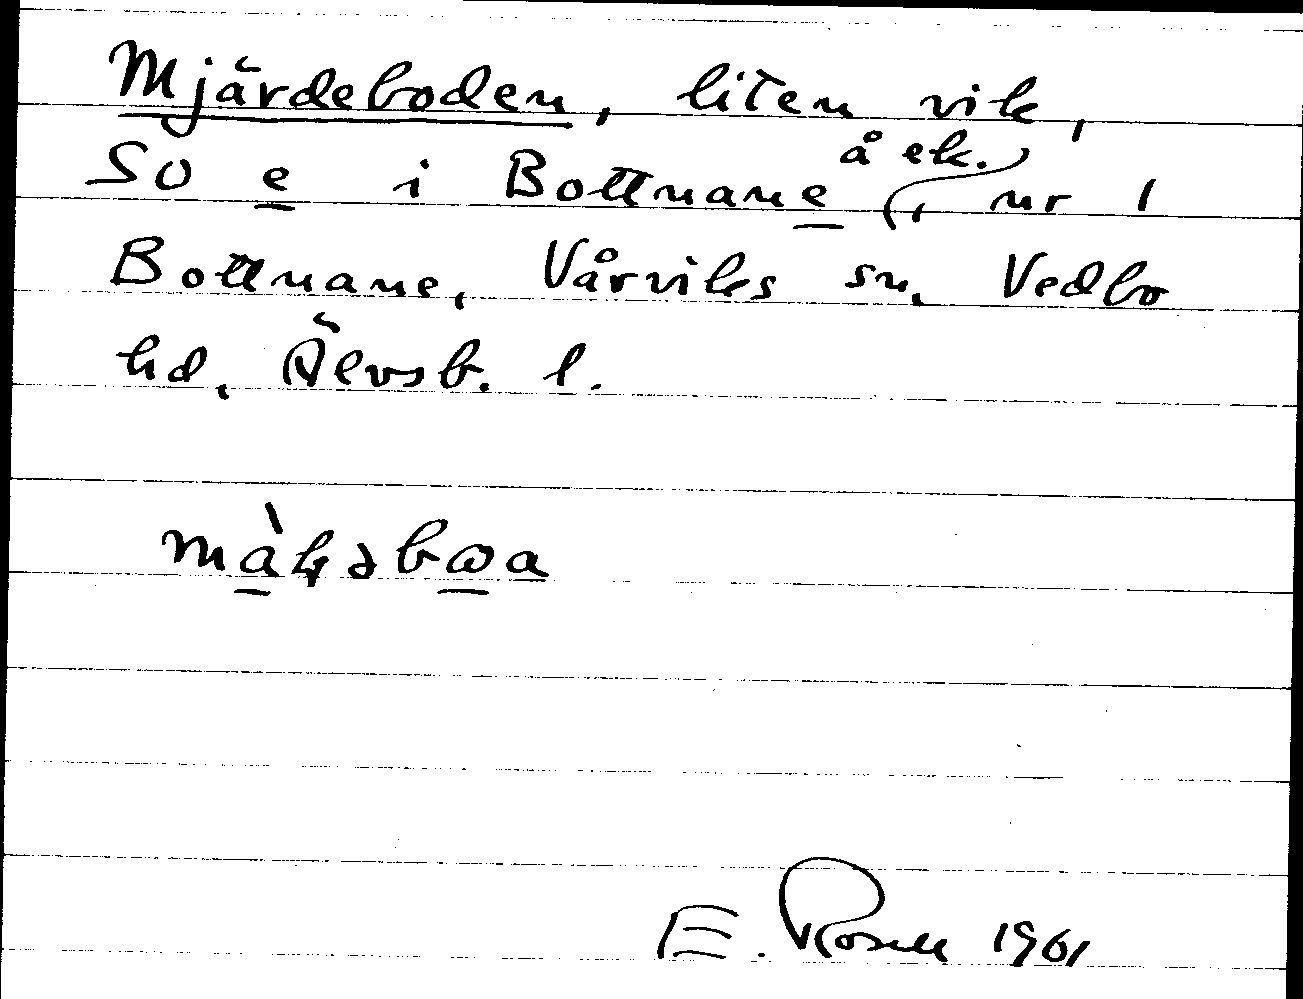 Mjärdeboden, liten vik,
SO e i Bottnane å ek., nr 1
Bottnane, Vårviks sn. Vedbo
hd. Älvsb. l.
E. Rosell 1961